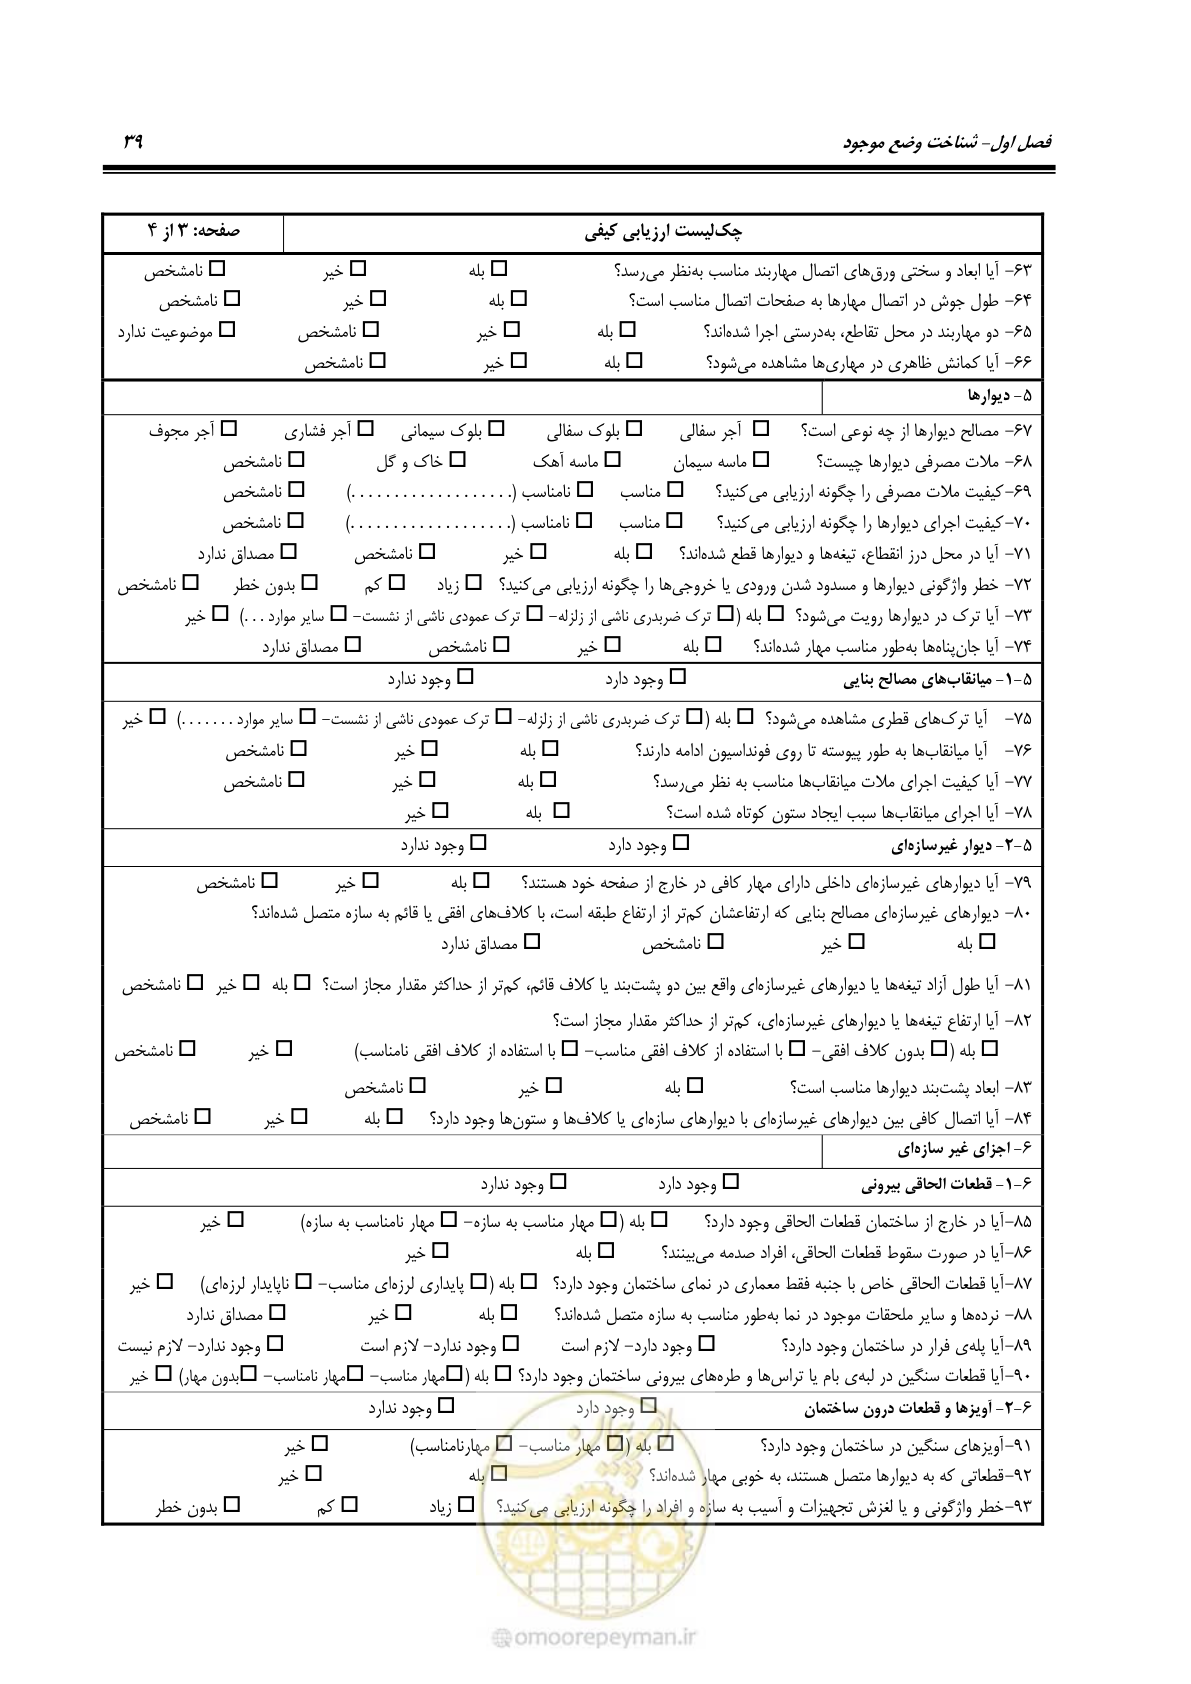 فصل اول- شناخت وضع موجود ۳۹
چک‌لیست ارزیابی کیفی صفحه: ۳ از ۴
۶۳- آیا ابعاد و سختی ورق‌های اتصال مهاربند مناسب به‌نظر می‌رسد؟ □ بله □ خیر □ نامشخص
۶۴- طول جوش در اتصال مهارها به صفحات اتصال مناسب است؟ □ بله □ خیر □ نامشخص
۶۵- دو مهاربند در محل تقاطع، به‌درستی اجرا شده‌اند؟ □ بله □ خیر □ نامشخص □ موضوعیت ندارد
۶۶- آیا کمانش ظاهری در مهاری‌ها مشاهده می‌شود؟ □ بله □ خیر □ نامشخص
۵- دیوارها
۶۷- مصالح دیوارها از چه نوعی است؟ □ آجر سفالی □ بلوک سفالی □ بلوک سیمانی □ آجر فشاری □ آجر مجوف
۶۸- ملات مصرفی دیوارها چیست؟ □ ماسه سیمان □ ماسه آهک □ خاک و گل □ نامشخص
۶۹-کیفیت ملات مصرفی را چگونه ارزیابی می‌کنید؟ □ مناسب □ نامناسب (. . . . . . . . . . . . . . . . . . .) □ نامشخص
۷۰-کیفیت اجرای دیوارها را چگونه ارزیابی می‌کنید؟ □ مناسب □ نامناسب (. . . . . . . . . . . . . . . . . . .) □ نامشخص
۷۱- آیا در محل درز انقطاع، تیغه‌ها و دیوارها قطع شده‌اند؟ □ بله □ خیر □ نامشخص □ مصداق ندارد
۷۲- خطر واژگونی دیوارها و مسدود شدن ورودی یا خروجی‌ها را چگونه ارزیابی می‌کنید؟ □ زیاد □ کم □ بدون خطر □ نامشخص
۷۳- آیا ترک در دیوارها رویت می‌شود؟ □ بله (□ ترک ضربدری ناشی از زلزله- □ ترک عمودی ناشی از نشست- □ سایر موارد . . .) □ خیر
۷۴- آیا جان‌پناه‌ها به‌طور مناسب مهار شده‌اند؟ □ بله □ خیر □ نامشخص □ مصداق ندارد
۵-۱- میانقاب‌های مصالح بنایی □ وجود دارد □ وجود ندارد
۷۵- آیا ترک‌های قطری مشاهده می‌شود؟ □ بله (□ ترک ضربدری ناشی از زلزله- □ ترک عمودی ناشی از نشست- □ سایر موارد . . . . . . .) □ خیر
۷۶- آیا میانقاب‌ها به طور پیوسته تا روی فونداسیون ادامه دارند؟ □ بله □ خیر □ نامشخص
۷۷- آیا کیفیت اجرای ملات میانقاب‌ها مناسب به نظر می‌رسد؟ □ بله □ خیر □ نامشخص
۷۸- آیا اجرای میانقاب‌ها سبب ایجاد ستون کوتاه شده است؟ □ بله □ خیر
۵-۲- دیوار غیرسازه‌ای □ وجود دارد □ وجود ندارد
۷۹- آیا دیوارهای غیرسازه‌ای داخلی دارای مهار کافی در خارج از صفحه خود هستند؟ □ بله □ خیر □ نامشخص
۸۰- دیوارهای غیرسازه‌ای مصالح بنایی که ارتفاعشان کم‌تر از ارتفاع طبقه است، با کلاف‌های افقی یا قائم به سازه متصل شده‌اند؟
□ بله □ خیر □ نامشخص □ مصداق ندارد
۸۱- آیا طول آزاد تیغه‌ها یا دیوارهای غیرسازه‌ای واقع بین دو پشت‌بند یا کلاف قائم، کم‌تر از حداکثر مقدار مجاز است؟ □ بله □ خیر □ نامشخص
۸۲- آیا ارتفاع تیغه‌ها یا دیوارهای غیرسازه‌ای، کم‌تر از حداکثر مقدار مجاز است؟
□ بله (□ بدون کلاف افقی- □ با استفاده از کلاف افقی مناسب- □ با استفاده از کلاف افقی نامناسب) □ خیر □ نامشخص
۸۳- ابعاد پشت‌بند دیوارها مناسب است؟ □ بله □ خیر □ نامشخص
۸۴- آیا اتصال کافی بین دیوارهای غیرسازه‌ای با دیوارهای سازه‌ای یا کلاف‌ها و ستون‌ها وجود دارد؟ □ بله □ خیر □ نامشخص
۶- اجزای غیر سازه‌ای
۶-۱- قطعات الحاقی بیرونی □ وجود دارد □ وجود ندارد
۸۵-آیا در خارج از ساختمان قطعات الحاقی وجود دارد؟ □ بله (□ مهار مناسب به سازه- □ مهار نامناسب به سازه) □ خیر
۸۶-آیا در صورت سقوط قطعات الحاقی، افراد صدمه می‌بینند؟ □ بله □ خیر
۸۷-آیا قطعات الحاقی خاص با جنبه فقط معماری در نمای ساختمان وجود دارد؟ □ بله (□ پایداری لرزه‌ای مناسب- □ ناپایدار لرزه‌ای) □ خیر
۸۸- نرده‌ها و سایر ملحقات موجود در نما به‌طور مناسب به سازه متصل شده‌اند؟ □ بله □ خیر □ مصداق ندارد
۸۹-آیا پله‌ی فرار در ساختمان وجود دارد؟ □ وجود دارد- لازم است □ وجود ندارد- لازم است □ وجود ندارد- لازم نیست
۹۰-آیا قطعات سنگین در لبه‌ی بام یا تراس‌ها و طره‌های بیرونی ساختمان وجود دارد؟ □ بله (□مهار مناسب- □مهار نامناسب- □بدون مهار) □ خیر
۶-۲- آویزها و قطعات درون ساختمان □ وجود دارد □ وجود ندارد
۹۱-آویزهای سنگین در ساختمان وجود دارد؟ □ بله (□ مهار مناسب- □ مهارنامناسب) □ خیر
۹۲-قطعاتی که به دیوارها متصل هستند، به خوبی مهار شده‌اند؟ □ بله □ خیر
۹۳-خطر واژگونی و یا لغزش تجهیزات و آسیب به سازه و افراد را چگونه ارزیابی می‌کنید؟ □ زیاد □ کم □ بدون خطر
امور پیمان
@omoorepeyman.ir